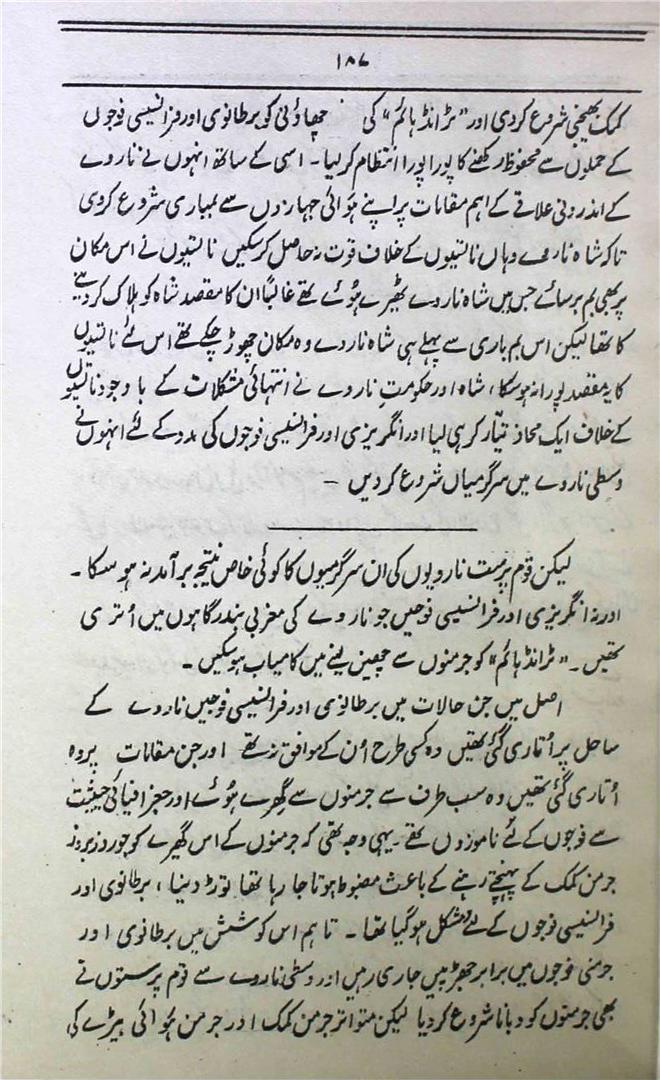 ۱۸۷
کمک بھیجنی شروع کردی اور "ٹرانڈہائم" کی چھاؤنی کو برطانوی اور فرانسیسی فوجوں
کے حملوں سے محفوظ رکھنے کا پورا پورا انتظام کرلیا۔ اسی کے ساتھ انہوں نے ناروے
کے اندرونی علاقے کے اہم مقامات پر اپنے ہوائی جہازوں سے بمباری شروع کردی
تاکہ شاہ ناروے وہاں ناتسیوں کے خلاف قوت نہ حاصل کرسکیں ناتسیوں نے اس مکان
پر بھی بم برسائے جس میں شاہ ناروے ٹھیرے ہوئے تھے غالباً ان کا مقصد شاہ کو ہلاک کردینے
کا تھا لیکن اس بم باری سے پہلے ہی شاہ ناروے وہ مکان چھوڑ چکے تھے اس لئے ناتسیوں
کا یہ مقصد پورا نہ ہوسکا، شاہ اور حکومتِ ناروے نے انتہائی مشکلات کے باوجود ناتسیوں
کے خلاف ایک محاذ تیّار کر ہی لیا اور انگریزی اور فرانسیسی فوجوں کی مدد کے لئے انہوں نے
وسطی ناروے میں سرگرمیاں شروع کردیں ۔
لیکن قوم پرست نارویوں کی ان سرگرمیوں کا کوئی خاص نتیجہ برآمد نہ ہوسکا ۔
اور نہ انگریزی اور فرانسیسی فوجیں جو ناروے کی مغربی بندرگاہوں میں اُتری
تھیں ۔ "ٹرانڈہائم" کو جرمنوں سے چھین لینے میں کامیاب ہوسکیں ۔
اصل میں جن حالات میں برطانوی اور فرانسیسی فوجیں ناروے کے
ساحل پر اُتاری گئی تھیں وہ کسی طرح اُن کے موافق نہ تھے اور جن مقامات پر وہ
اُتاری گئی تھیں وہ سب طرف سے جرمنوں سے گھرے ہوئے اور جغرافیائی حیثیت
سے فوجوں کے لئے ناموزوں تھے۔ یہی وجہ تھی کہ جرمنوں کے اس گھیرے کو جو روز بروز
جرمن کمک کے پہنچتے رہنے کے باعث مضبوط ہوتا جا رہا تھا توڑ دینا ، برطانوی اور
فرانسیسی فوجوں کے لئے مشکل ہوگیا تھا ۔ تاہم اس کوشش میں برطانوی اور
جرمنی فوجوں میں برابر جھڑپیں جاری رہیں اور وسطی ناروے سے قوم پرستوں نے
بھی جرمنوں کو دبانا شروع کردیا لیکن متواتر جرمن کمک اور جرمن ہوائی بیڑے کی